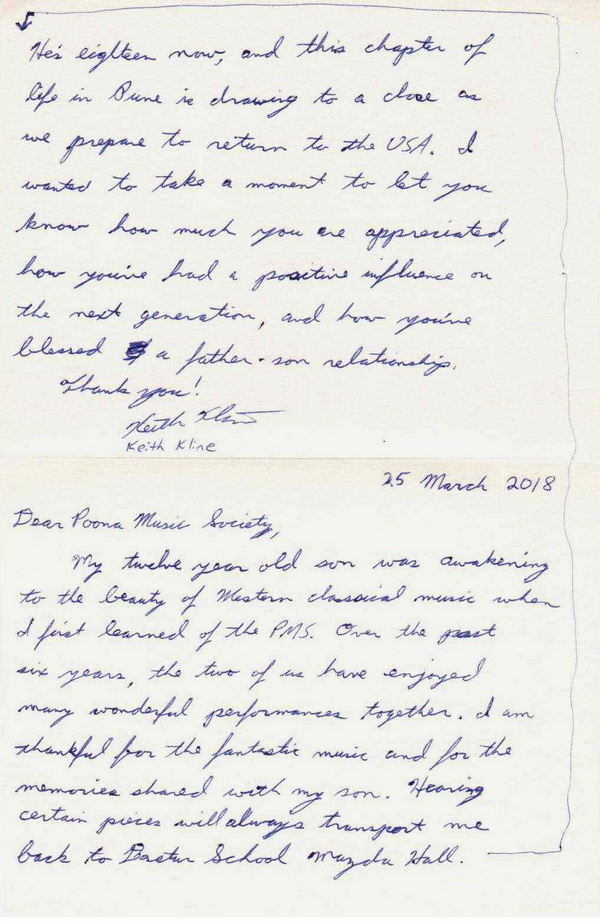 25 March 2018
Dear Poona Music Society,
My twelve year old son was awakening
to the beauty of Western classical music when
I first learned of the PMS. Over the past
six years, the two of us have enjoyed
many wonderful performances together. I am
thankful for the fantastic music and for the
memories shared with my son. Hearing
certain pieces will always transport me
back to Dastur School Mazda Hall.
He's eighteen now, and this chapter of
life in Pune is drawing to a close as
we prepare to return to the USA. I
wanted to take a moment to let you
know how much you are appreciated,
how you've had a positive influence on
the next generation, and how you've
blessed a father-son relationship.
Thank you!
Keith Kline
Keith Kline